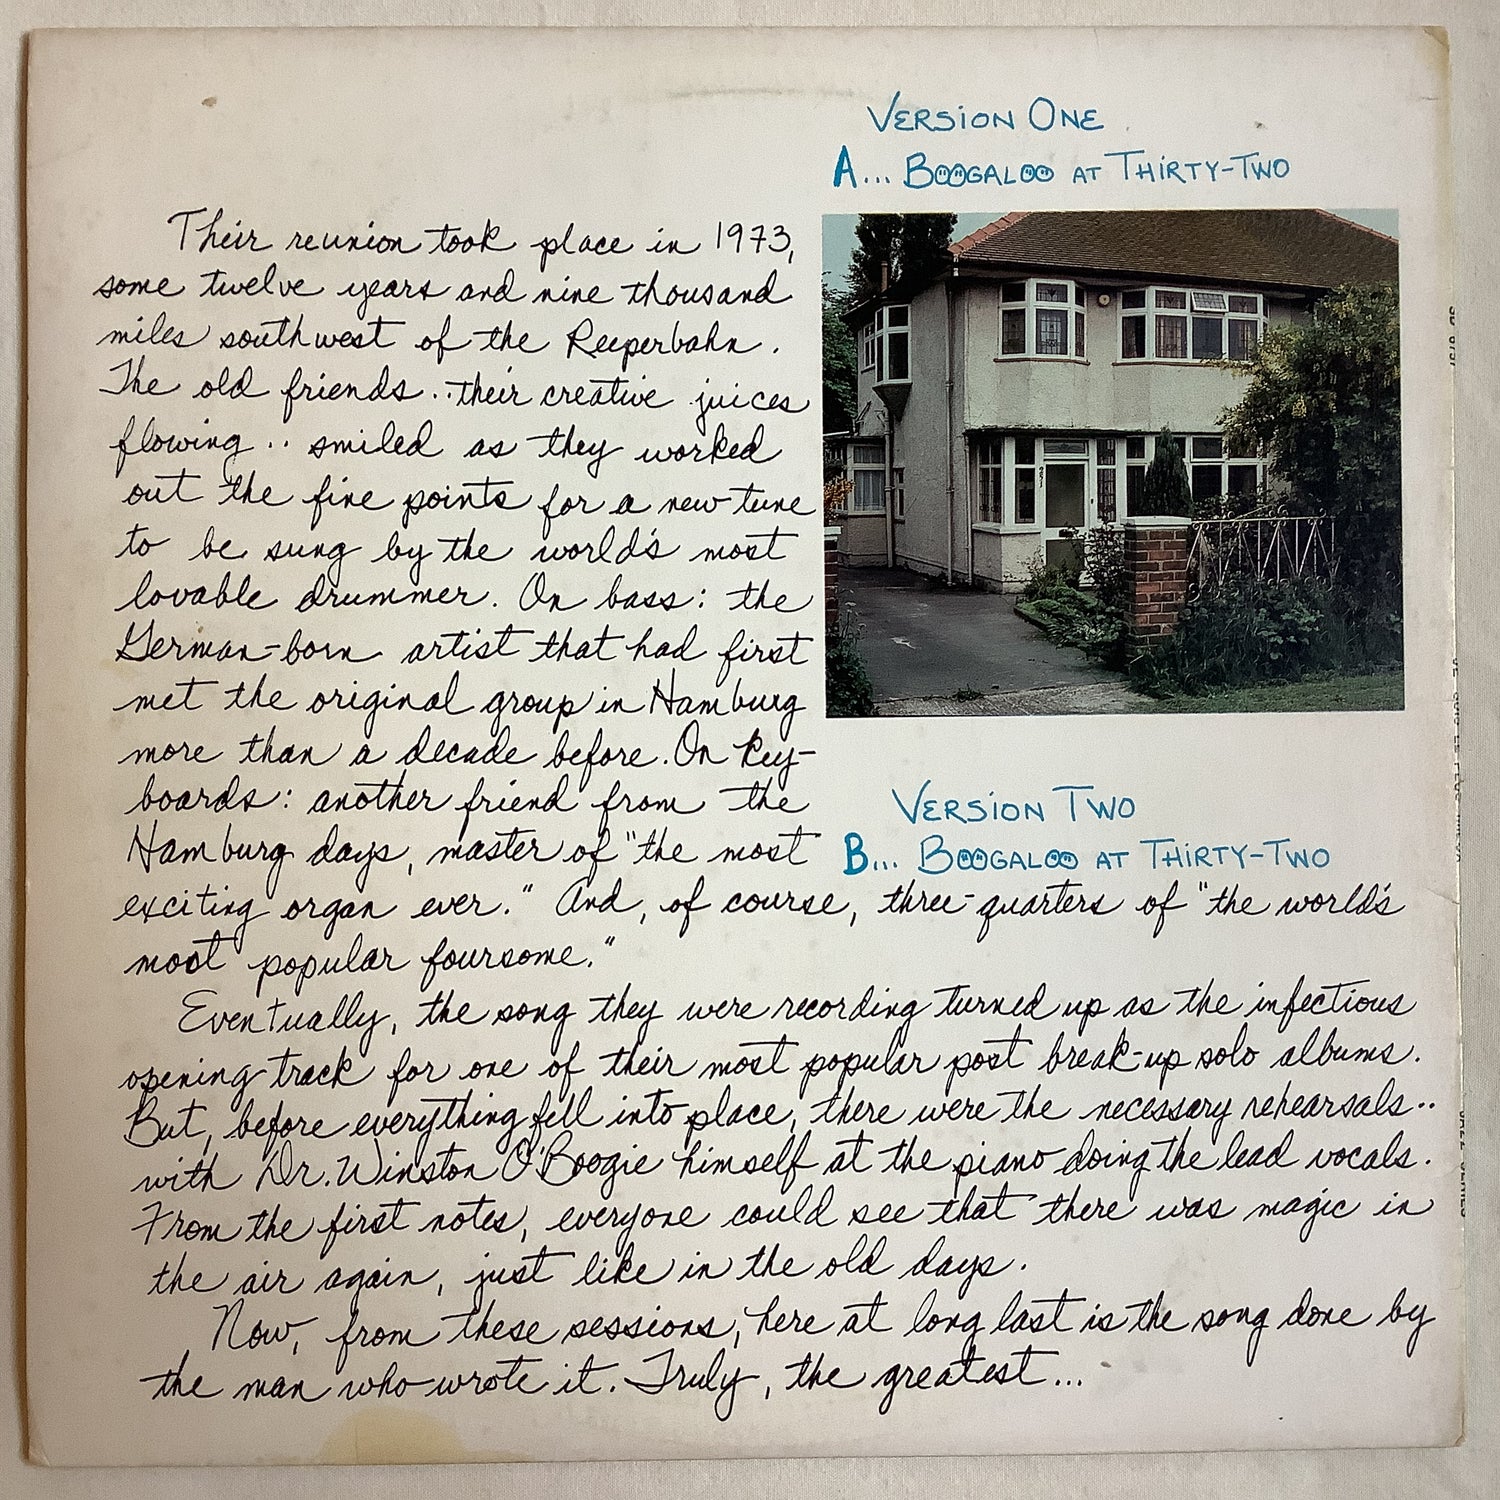 VERSION ONE
A... BOOGALOO AT THIRTY-TWO
Their reunion took place in 1973,
some twelve years and nine thousand
miles southwest of the Reeperbahn.
The old friends.. their creative juices
flowing.. smiled as they worked
out the fine points for a new tune
to be sung by the world's most
lovable drummer. On bass: the
German-born artist that had first
met the original group in Hamburg
more than a decade before. On key-
boards: another friend from the
Hamburg days, master of "the most
exciting organ ever." And, of course, three-quarters of "the world's
most popular foursome."
VERSION TWO
B... BOOGALOO AT THIRTY-TWO
Eventually, the song they were recording turned up as the infectious
opening track for one of their most popular post break-up solo albums.
But, before everything fell into place, there were the necessary rehearsals..
with Dr. Winston O'Boogie himself at the piano doing the lead vocals.
From the first notes, everyone could see that there was magic in
the air again, just like in the old days.
Now, from these sessions, here at long last is the song done by
the man who wrote it. Truly, the greatest...
251